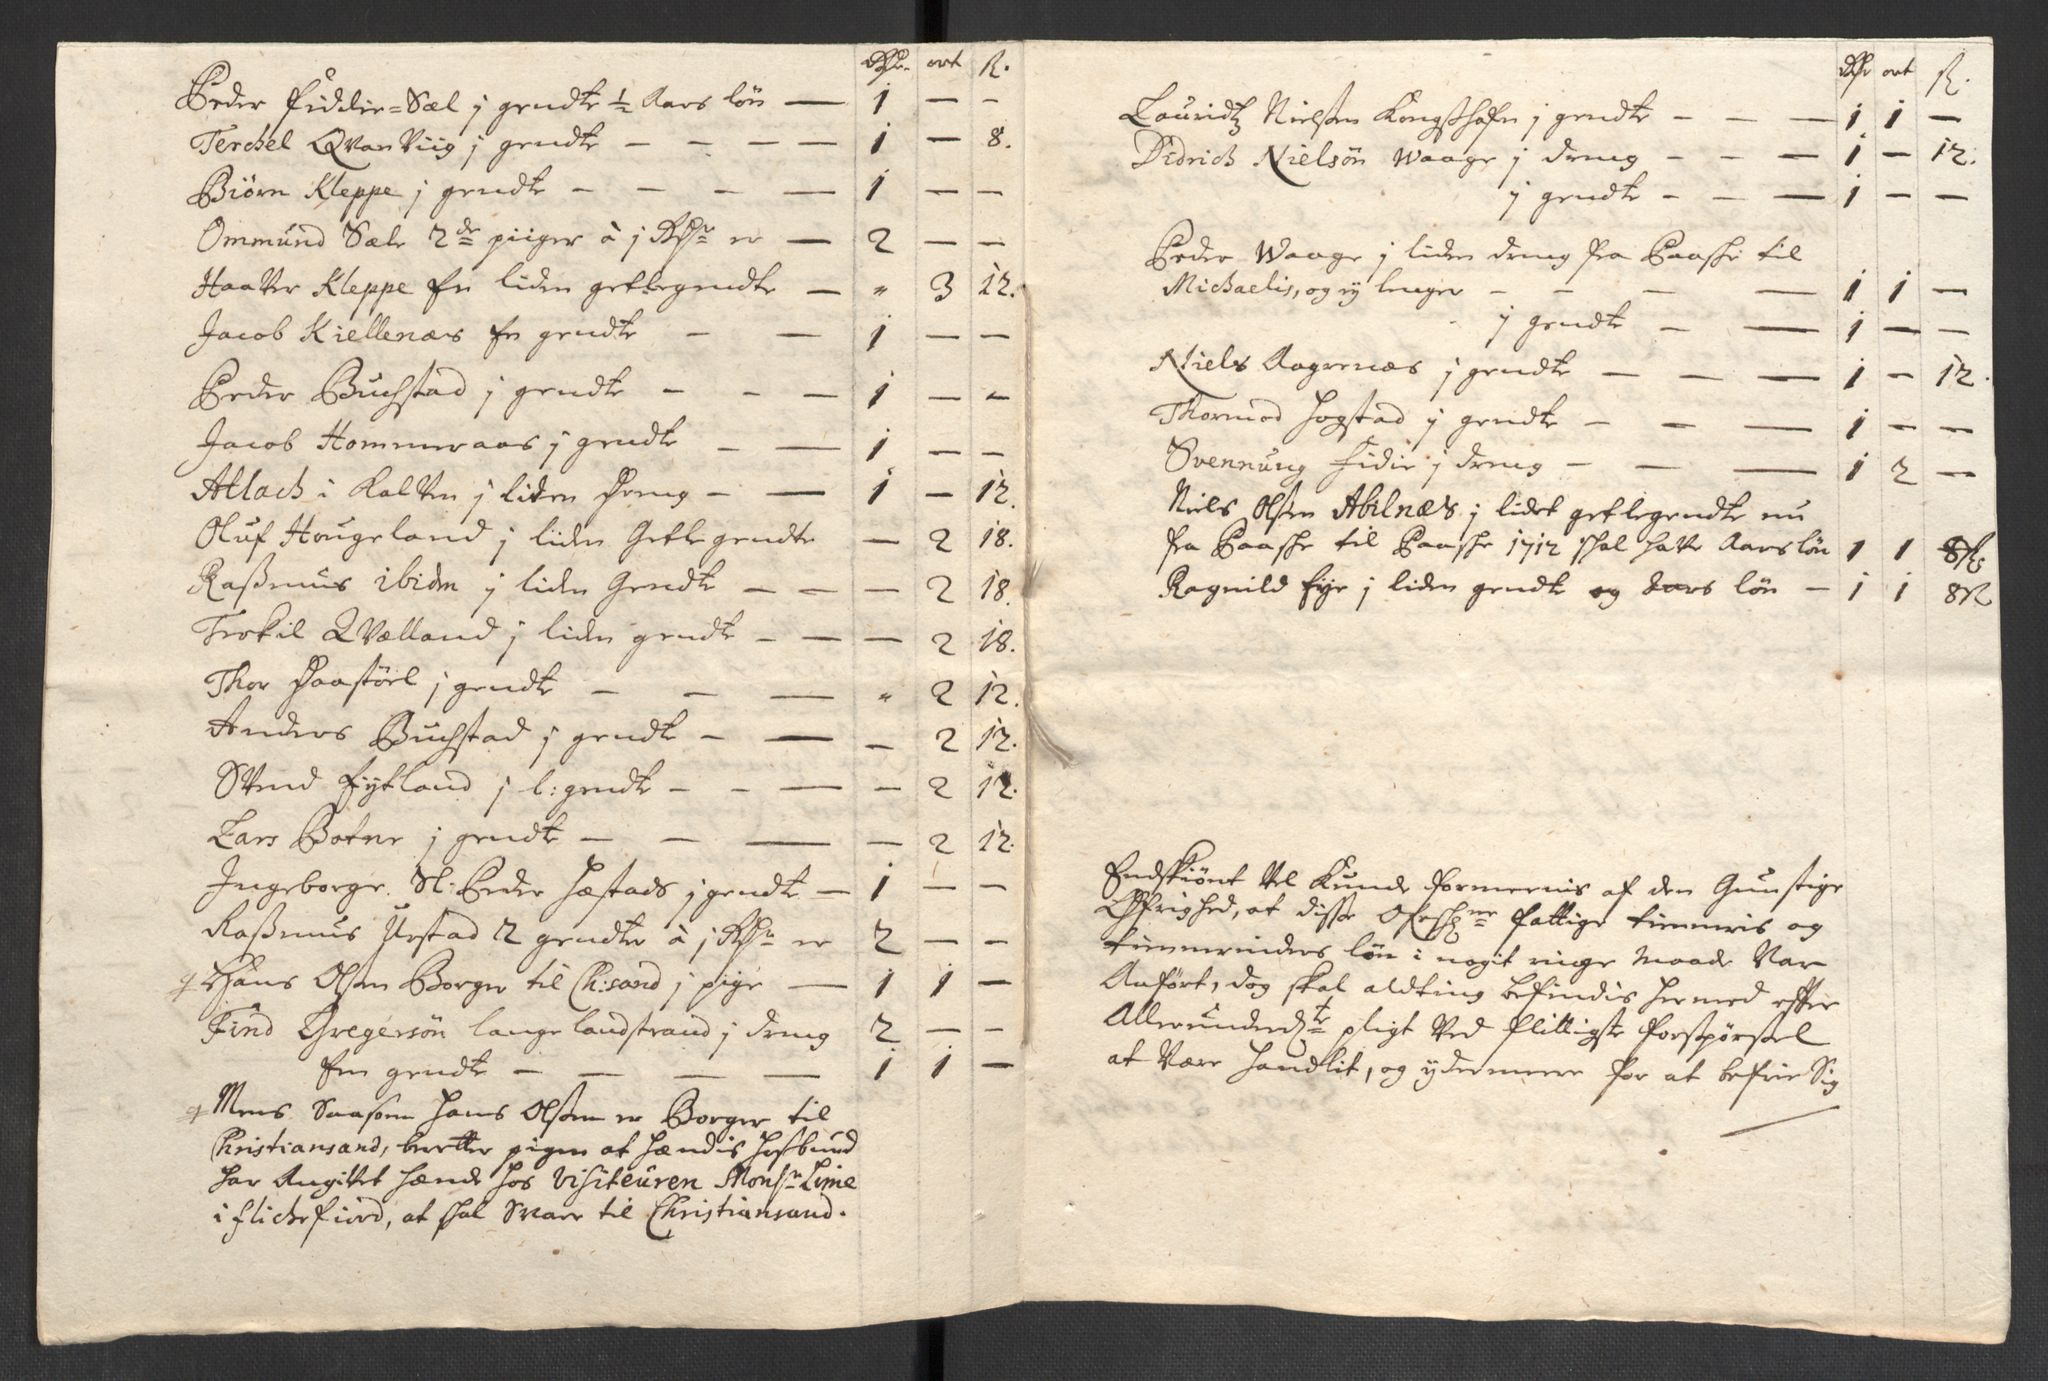 Rdr. ort ß.
Peder Fiddie=Sæl j gendte ½ Aars lön — 1 — —
Terchel QvanViig j gendte — — — — 1 — 8.
Biörn Kleppe j gendte — — — — 1 — —
Ommund Sæle 2de piiger à j Rdr er — 2 — —
Haaver Kleppe En liden getlegendte — " 3 12.
Jacob Kiellenæs En gendte — — 1 — —
Peder Buchstad j gendte — — — 1 — —
Jacob Hommeraas j gendte — — 1 — —
Atlach i Kalven j liden Dreng — — 1 — 12.
Oluf Hougeland j liden Getlegendte — 2 18.
Rasmus ibidn j liden Gendte — — — 2 18.
Trokil Qvælland j liden gendte — — — 2 18.
Thor Daastöel j gendte — — — " 2 12.
Anders Buchstad j gendte — — — 2 12.
Svend Eytland j l: gendte — — — — 2 12.
Lars Botne j gendte — — — — 2 12.
Ingeborge Sl: Peder Hæstads j gendte — 1 — —
Rasmus Urstad 2 gendter à j Rdr er 2 — —
Hans Olsen Borger til Ch:sand j pige — 1 1 —
Find Gregersön lange landstrand j dreng 2 — —
En gendte — — — — 1 1 —
Mens Saasom Hans Olsen er Borger til
Christiansand, beretter pigen at hændis Hosbund
har Angivet hænde hos Visiteuren Monsr Lime
i Flichefiord, at skal Svare til Christiansand.
Rdr ort ß.
Lauridtz Nielsen Kongshafn j gendte — — — 1 1 —
Didrich Nielsön Waage j dreng — — — 1 — 12.
j gendte — — — 1 — —
Peder Waage j liden dreng fra Paaske til
Michaelis, og ey lenger — — — — 1 1 —
j gendte — — 1 — —
Niels Aagernæs j gendte — — — 1 — 12.
Thormod Hogstad j gendte — — — 1 — —
Svennung Fidie j dreng — — — 1 2 —
Niels Olsen Abilnæs j lidet getlegendte nu
fra Paaske til Paaske 1712 skal have Aarslön 1 1 8ß
Ragnild Eye j liden gendte og Aars lön — 1 1 8ß
Endskiönt Vel Kunde formeenis af den Gunstige
Øfrighed, at disse fattige tienneris og
tiennerinders lön i nogit ringe Maade Var
Anfört, dog skal alting befindis hermed efter
Allerunderdte pligt Ved flittigste forspörsel
at Være handlit, og ydermeere for at befrie Sig